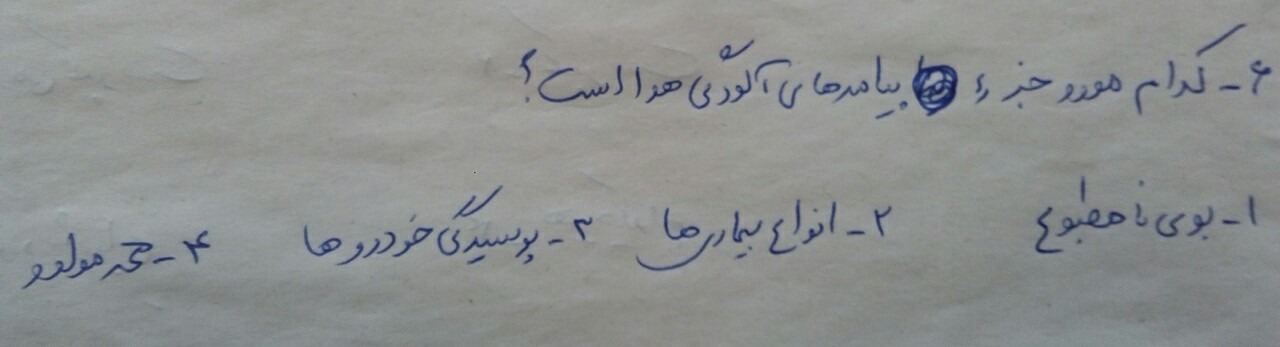 ۶- کدام مورد جزء پیامدهای آلودگی هوا است؟
۱- بوی نامطبوع ۲- انواع بیماری‌ها ۳- پوسیدگی خودروها ۴- همه موارد